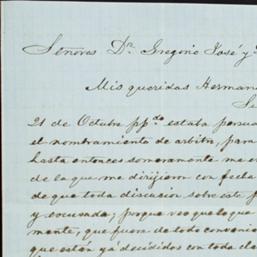 Señores Dn. Gregorio José y
Mis queridas Herman
21 de Octubre pp.do estaba persua
el nombramiento de arbitro, para
hasta entonces someramente me
de la que me dirijieron con fecha
de que toda discusion sobre este p
y escusada, porque veo que lo que
mente, que fuera de todo convenio
que están yá decididos con toda cla